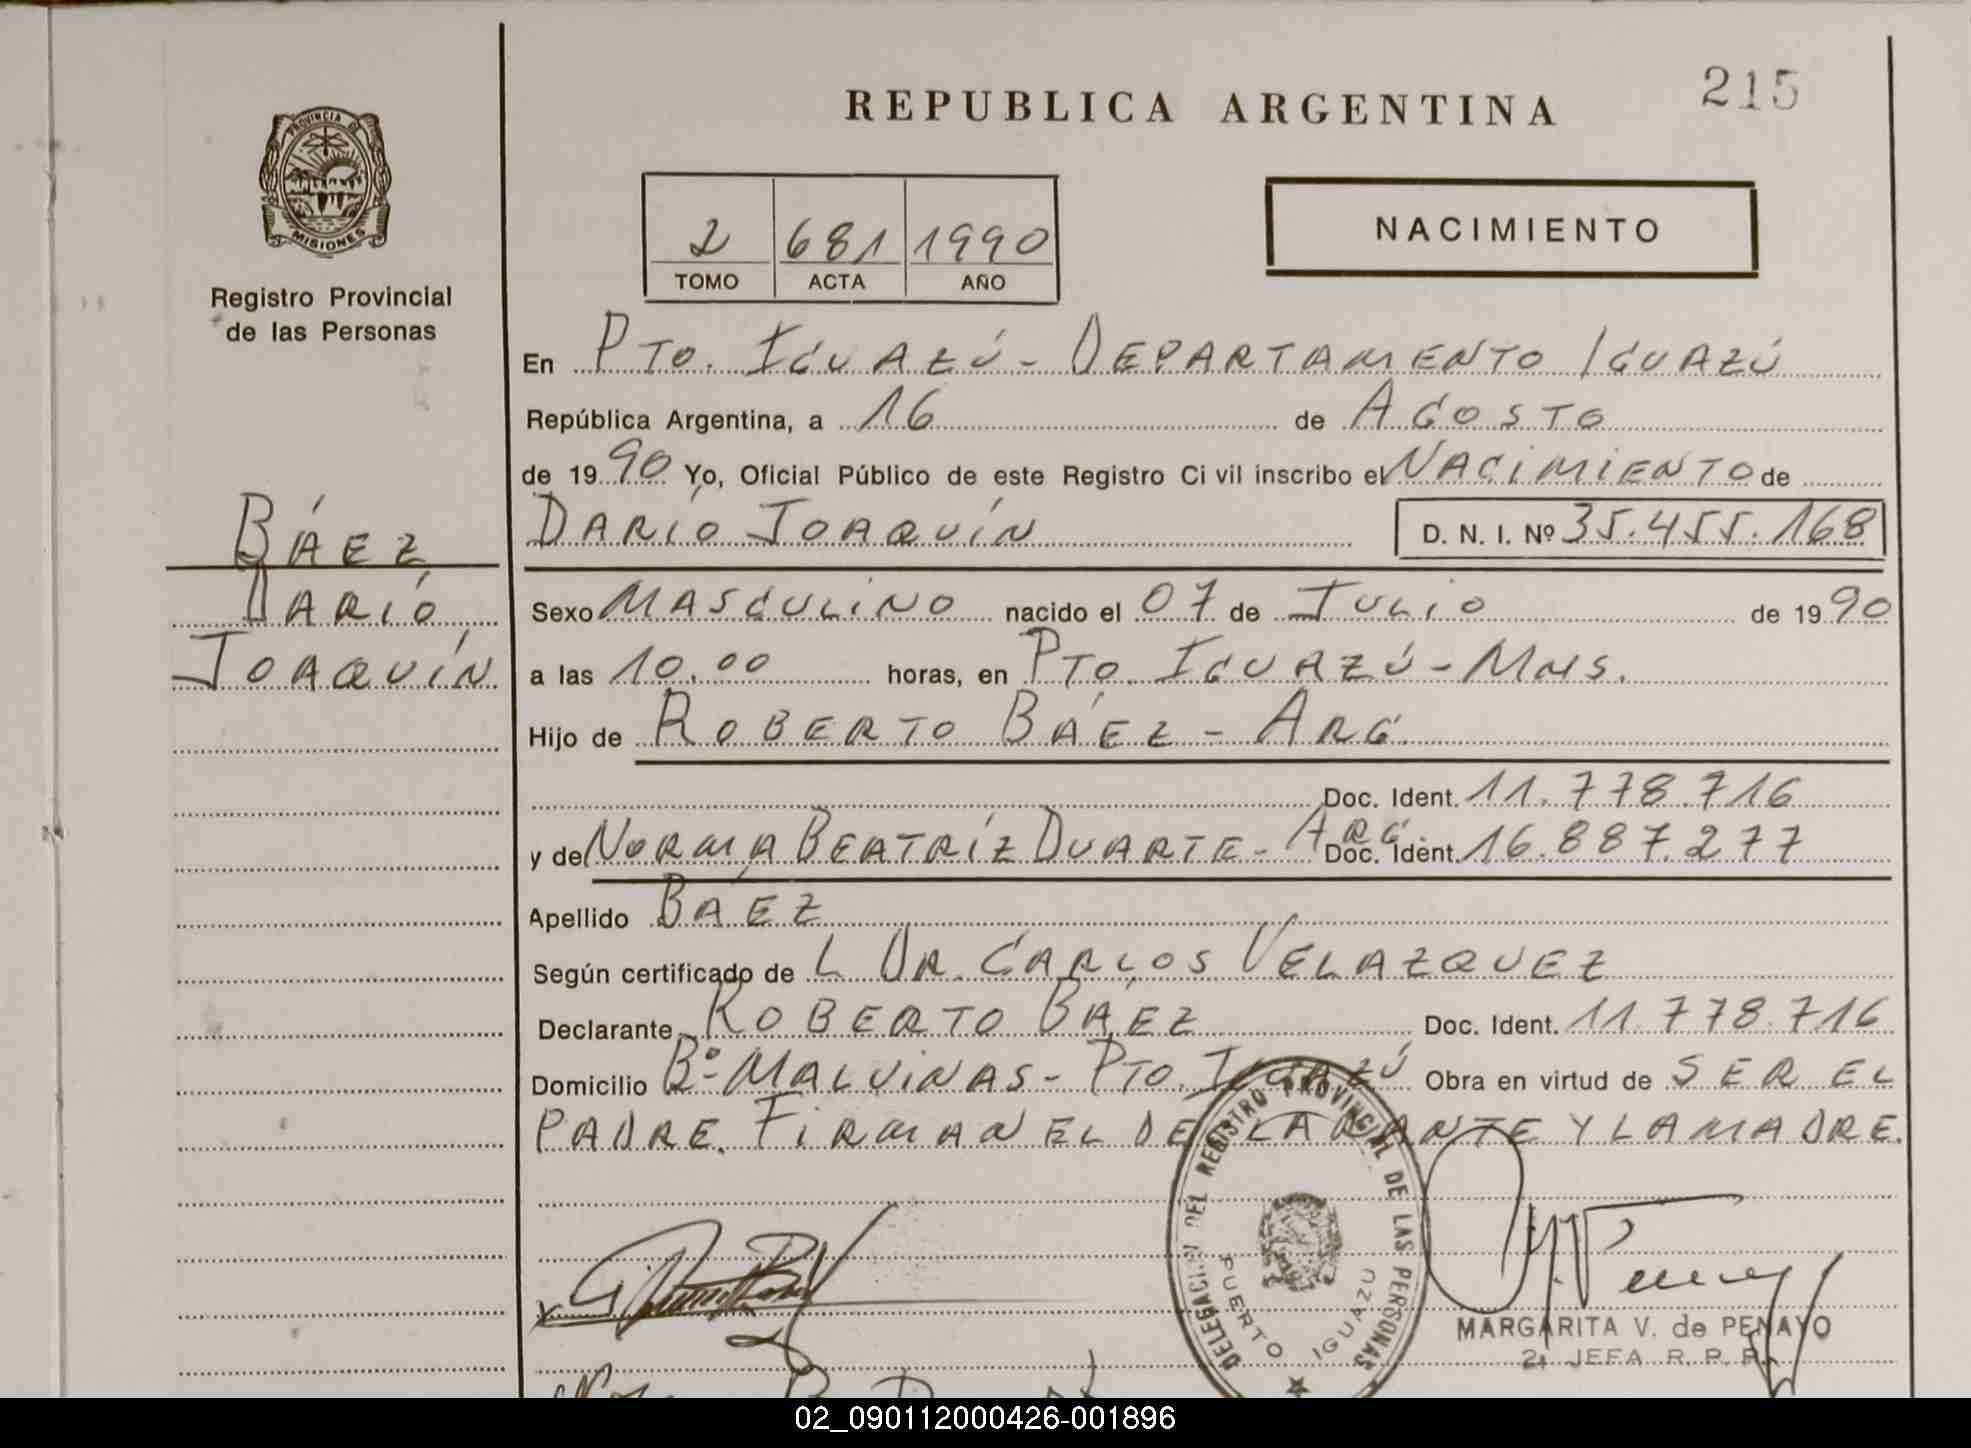 215
REPUBLICA ARGENTINA
PROVINCIA DE
MISIONES
Registro Provincial
de las Personas
2 681 1990
TOMO ACTA AÑO
NACIMIENTO
En PTO. IGUAZÚ - DEPARTAMENTO IGUAZÚ
República Argentina, a 16 de AGOSTO
de 1990 Yo, Oficial Público de este Registro Ci vil inscribo el NACIMIENTO de
DARÍO JOAQUÍN D. N. I. Nº 35.455.168
BÁEZ
DARÍO
JOAQUÍN
Sexo MASCULINO nacido el 07 de JULIO de 1990
a las 10.00 horas, en PTO. IGUAZÚ - MNS.
Hijo de ROBERTO BÁEZ - ARG.
Doc. Ident. 11.778.716
y de NORMA BEATRÍZ DUARTE - ARG. Doc. Ident. 16.887.277
Apellido BÁEZ
Según certificado de L DR. CARLOS VELAZQUEZ
Declarante ROBERTO BÁEZ Doc. Ident. 11.778.716
Domicilio Bº MALVINAS - PTO. IGUAZÚ Obra en virtud de SER EL
PADRE. FIRMAN EL DECLARANTE Y LA MADRE.
DELEGACION DEL REGISTRO PROVINCIAL DE LAS PERSONAS
PUERTO IGUAZU
MARGARITA V. de PENAYO
2ª JEFA R. P. P.
02_090112000426-001896